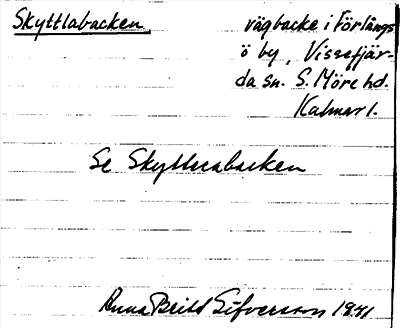 Skyttlabacken. vägbacke i Förlångs
ö by, Vissefjär-
da sn. S. Möre hd.
Kalmar l.
Se Skyttlerabacken
Anna Britt Sifversson 1941